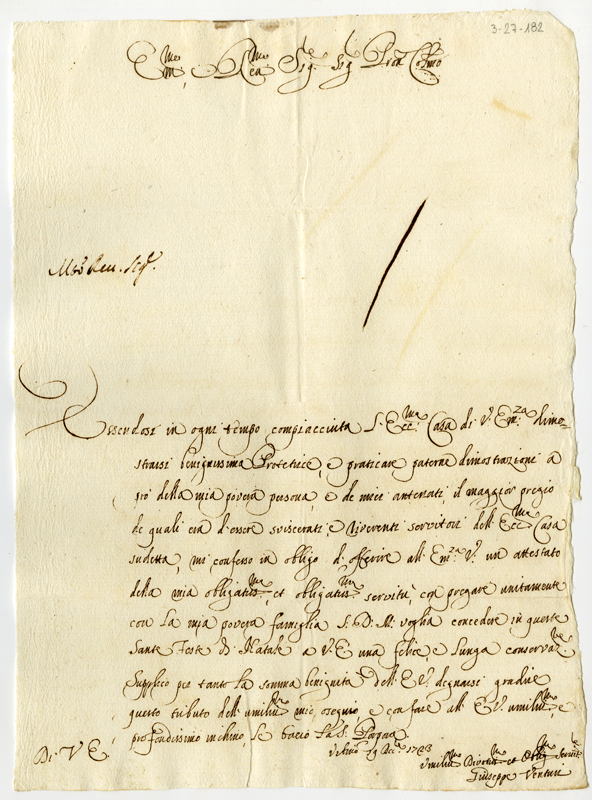 3-27-182
Em.mo e Rev.mo Sig.re Sig. Prōn Col.mo
Essendosi in ogni tempo compiacciuta l'Ecc.ma Casa di V. Em.za dimo-
strarsi benignissima Protetrice, e praticare paterne dimostrazioni a
prò della mia povera persona, e de miei antenati, il maggior pregio
de quali era d'essere sviscerati, e riverenti servitori dell'Ecc.ma Casa
sudetta, mi confesso in obligo d'offerire all'Em.za V. un attestato
della mia obligatis.ma et obligatis.ma servitù, con pregare unitamente
con la mia povera famiglia S. D. M. voglia concedere in queste
Sante Feste di Natale a V. E. una felice, e lunga conservaz.ne
Supplico per tanto la somma benignità dell'E. V. degnarsi gradire
questo tributo dell'umilis.mo mio osequio, e con fare all'E. V. umilis.mo, e
profondissimo inchino, le bacio la S. Porpora
19 Xcre
Di V. E.
Umilis.mo Divotis.mo et Oblig.mo Servit.re
Giuseppe Venturi